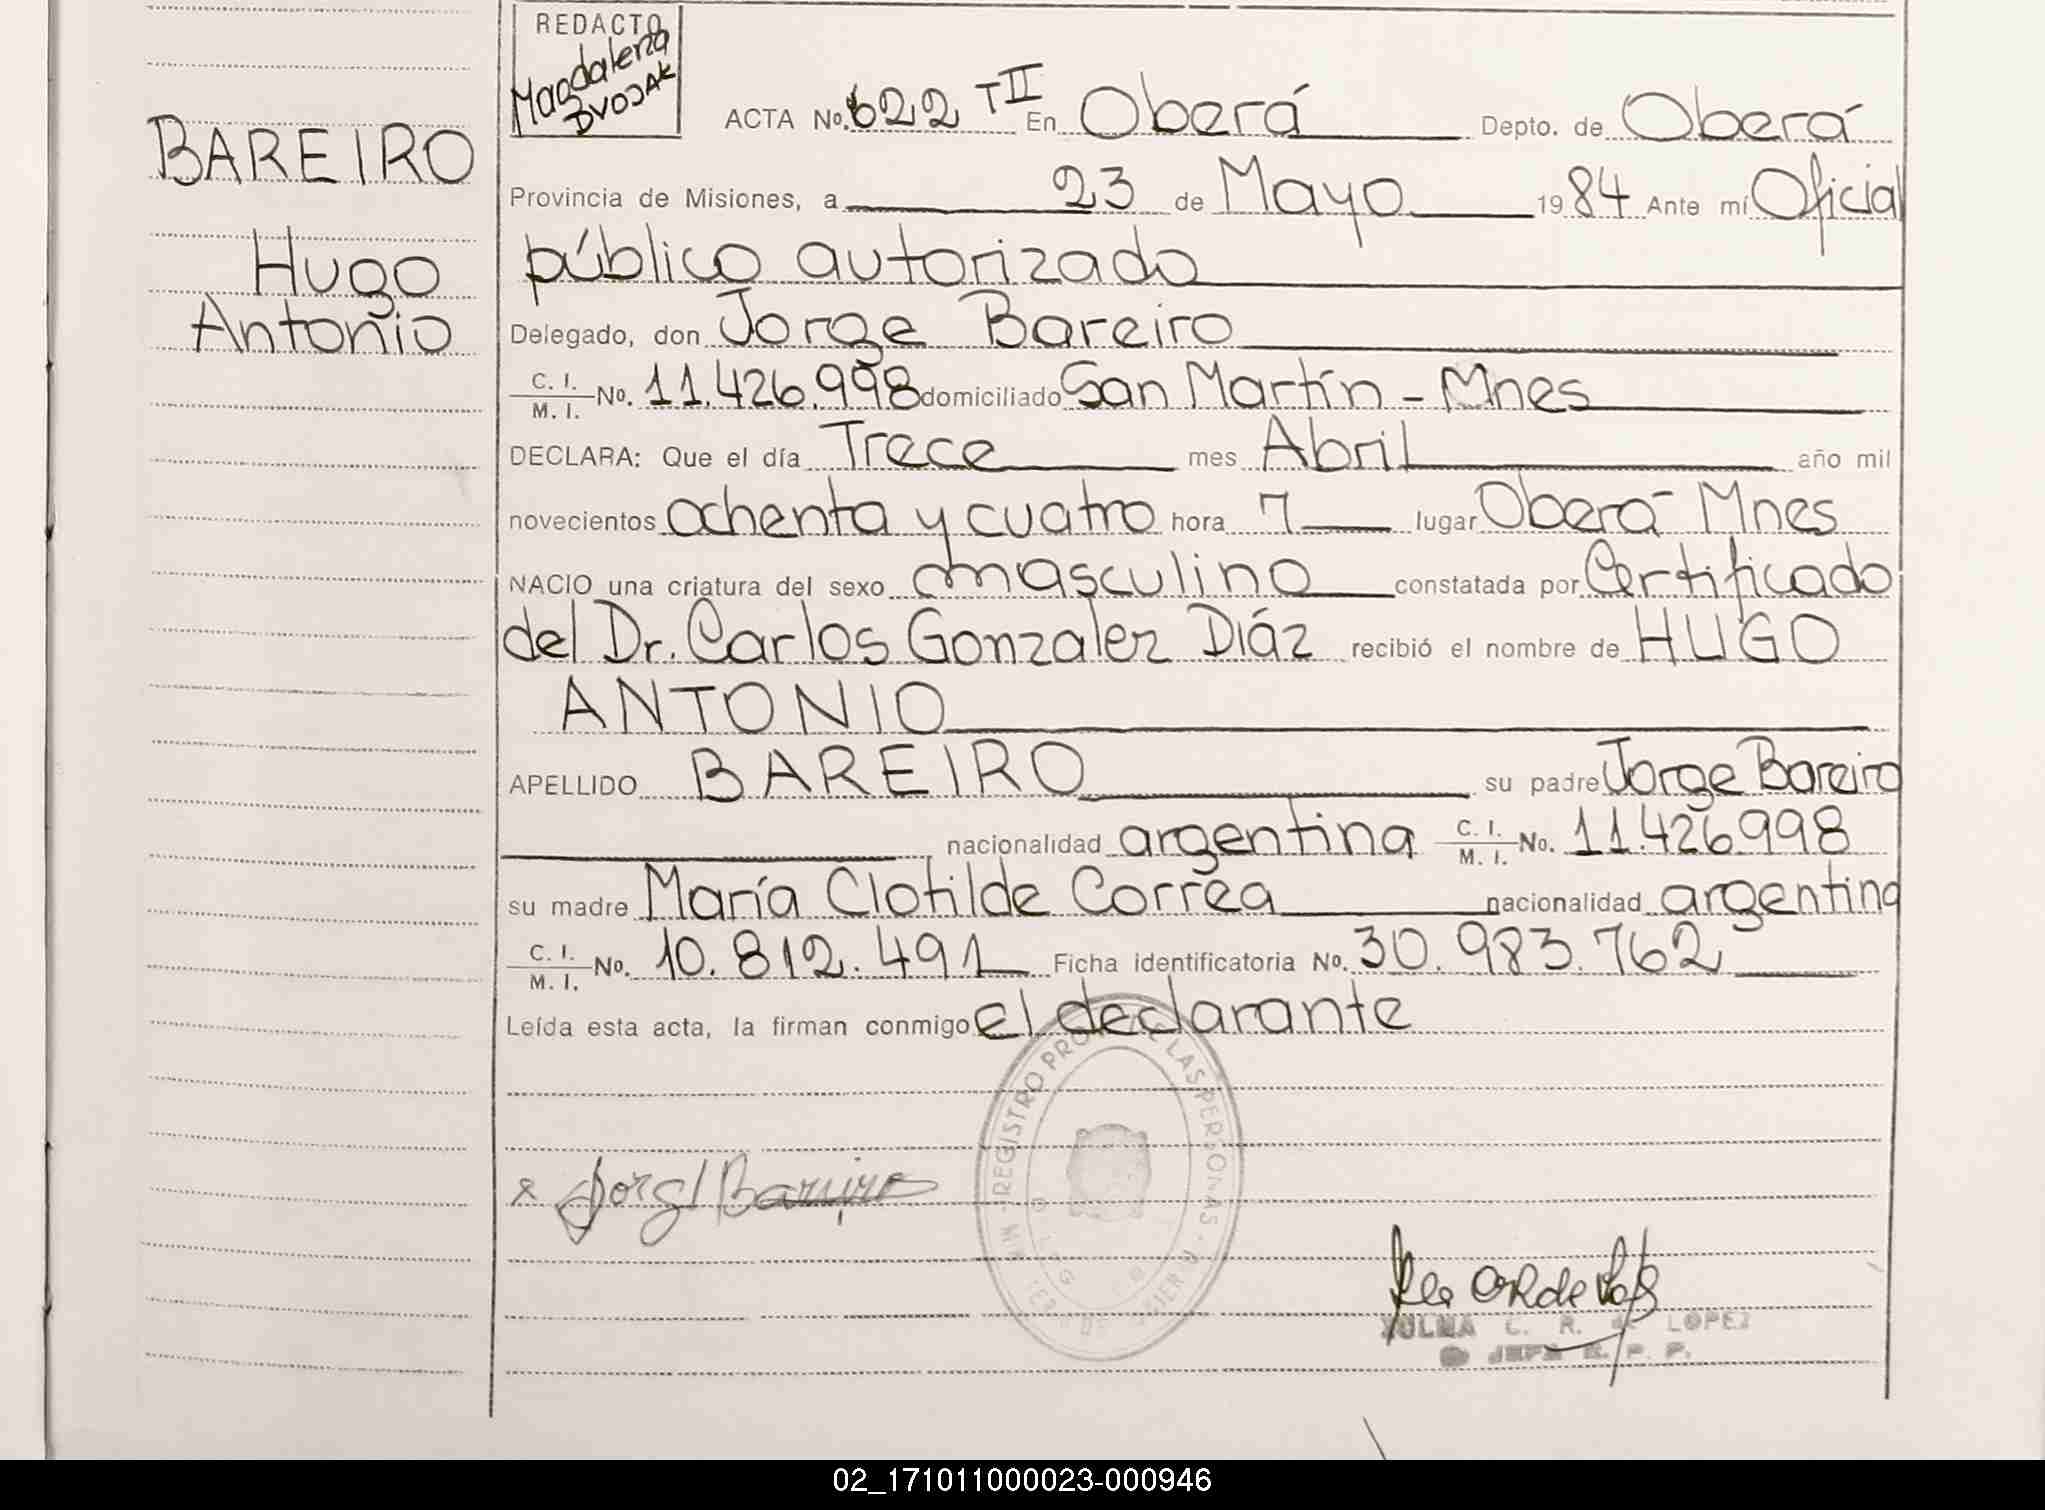 REDACTO
Magdalena
DVOJAK
BAREIRO
Hugo
Antonio
ACTA No. 622 T II En Oberá Depto. de Oberá
Provincia de Misiones, a 23 de Mayo 1984 Ante mí Oficial
público autorizado
Delegado, don Jorge Bareiro
C. I. / M. I. No. 11.426.998 domiciliado San Martín - Mnes
DECLARA: Que el día Trece mes Abril año mil
novecientos ochenta y cuatro hora 7 lugar Oberá - Mnes
NACIO una criatura del sexo masculino constatada por Certificado
del Dr. Carlos Gonzalez Diáz recibió el nombre de HUGO
ANTONIO
APELLIDO BAREIRO su padre Jorge Bareiro
nacionalidad argentina C. I. / M. I. No. 11.426.998
su madre María Clotilde Corrêa nacionalidad argentina
C. I. / M. I. No. 10.812.491 Ficha identificatoria No. 30.983.762
Leída esta acta, la firman conmigo el declarante
REGISTRO PROV. DE LAS PERSONAS
x Jorge Bareiro
C. R. de LOPEZ
JEFA R. P. P.
02_171011000023-000946